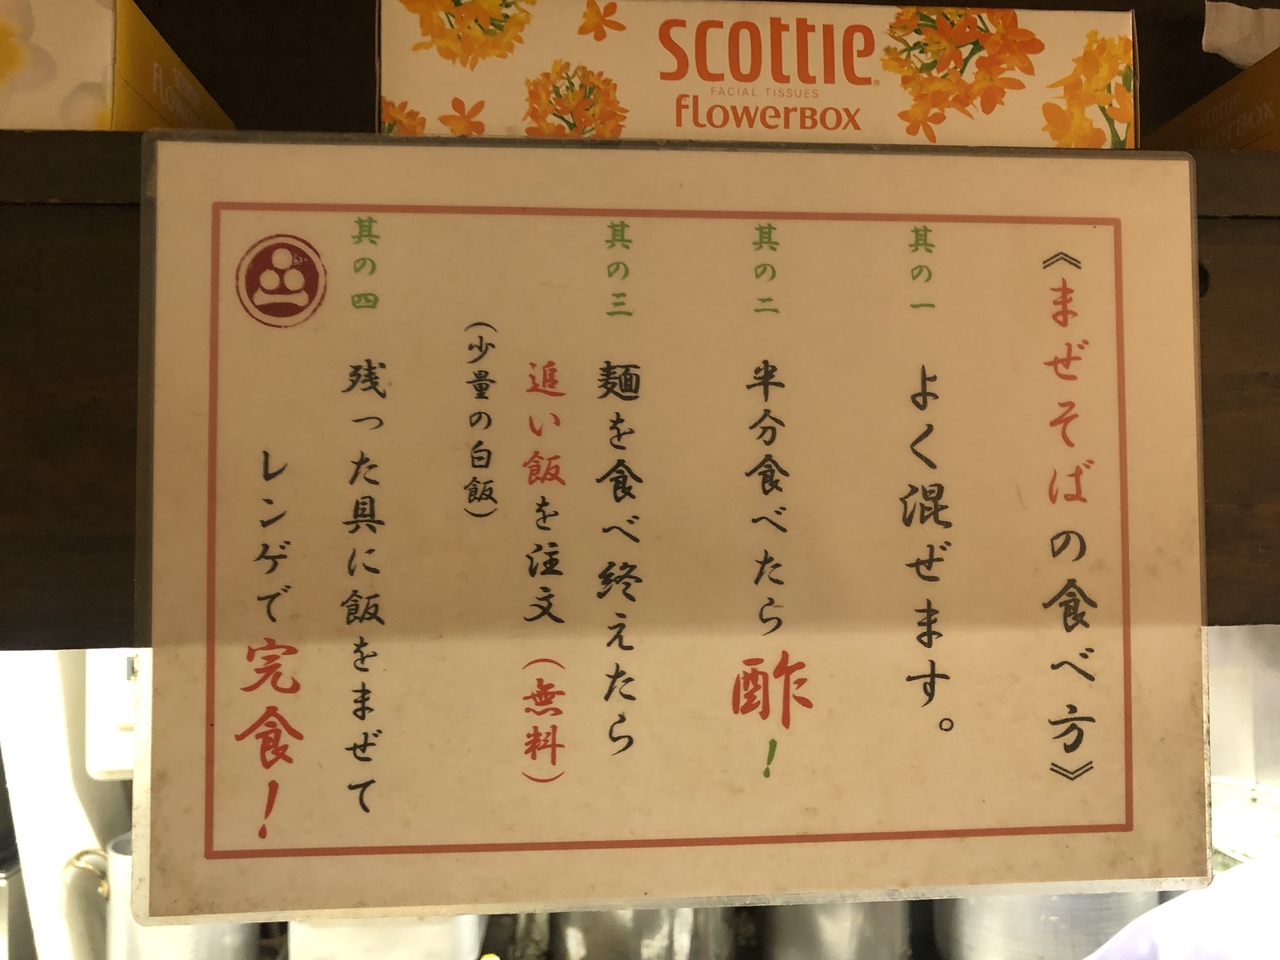 scottie
FACIAL TISSUES
flowerBOX
《まぜそばの食べ方》
其の一 よく混ぜます。
其の二 半分食べたら酢!
其の三 麺を食べ終えたら
追い飯を注文(無料)
(少量の白飯)
其の四 残った具に飯をまぜて
レンゲで完食!